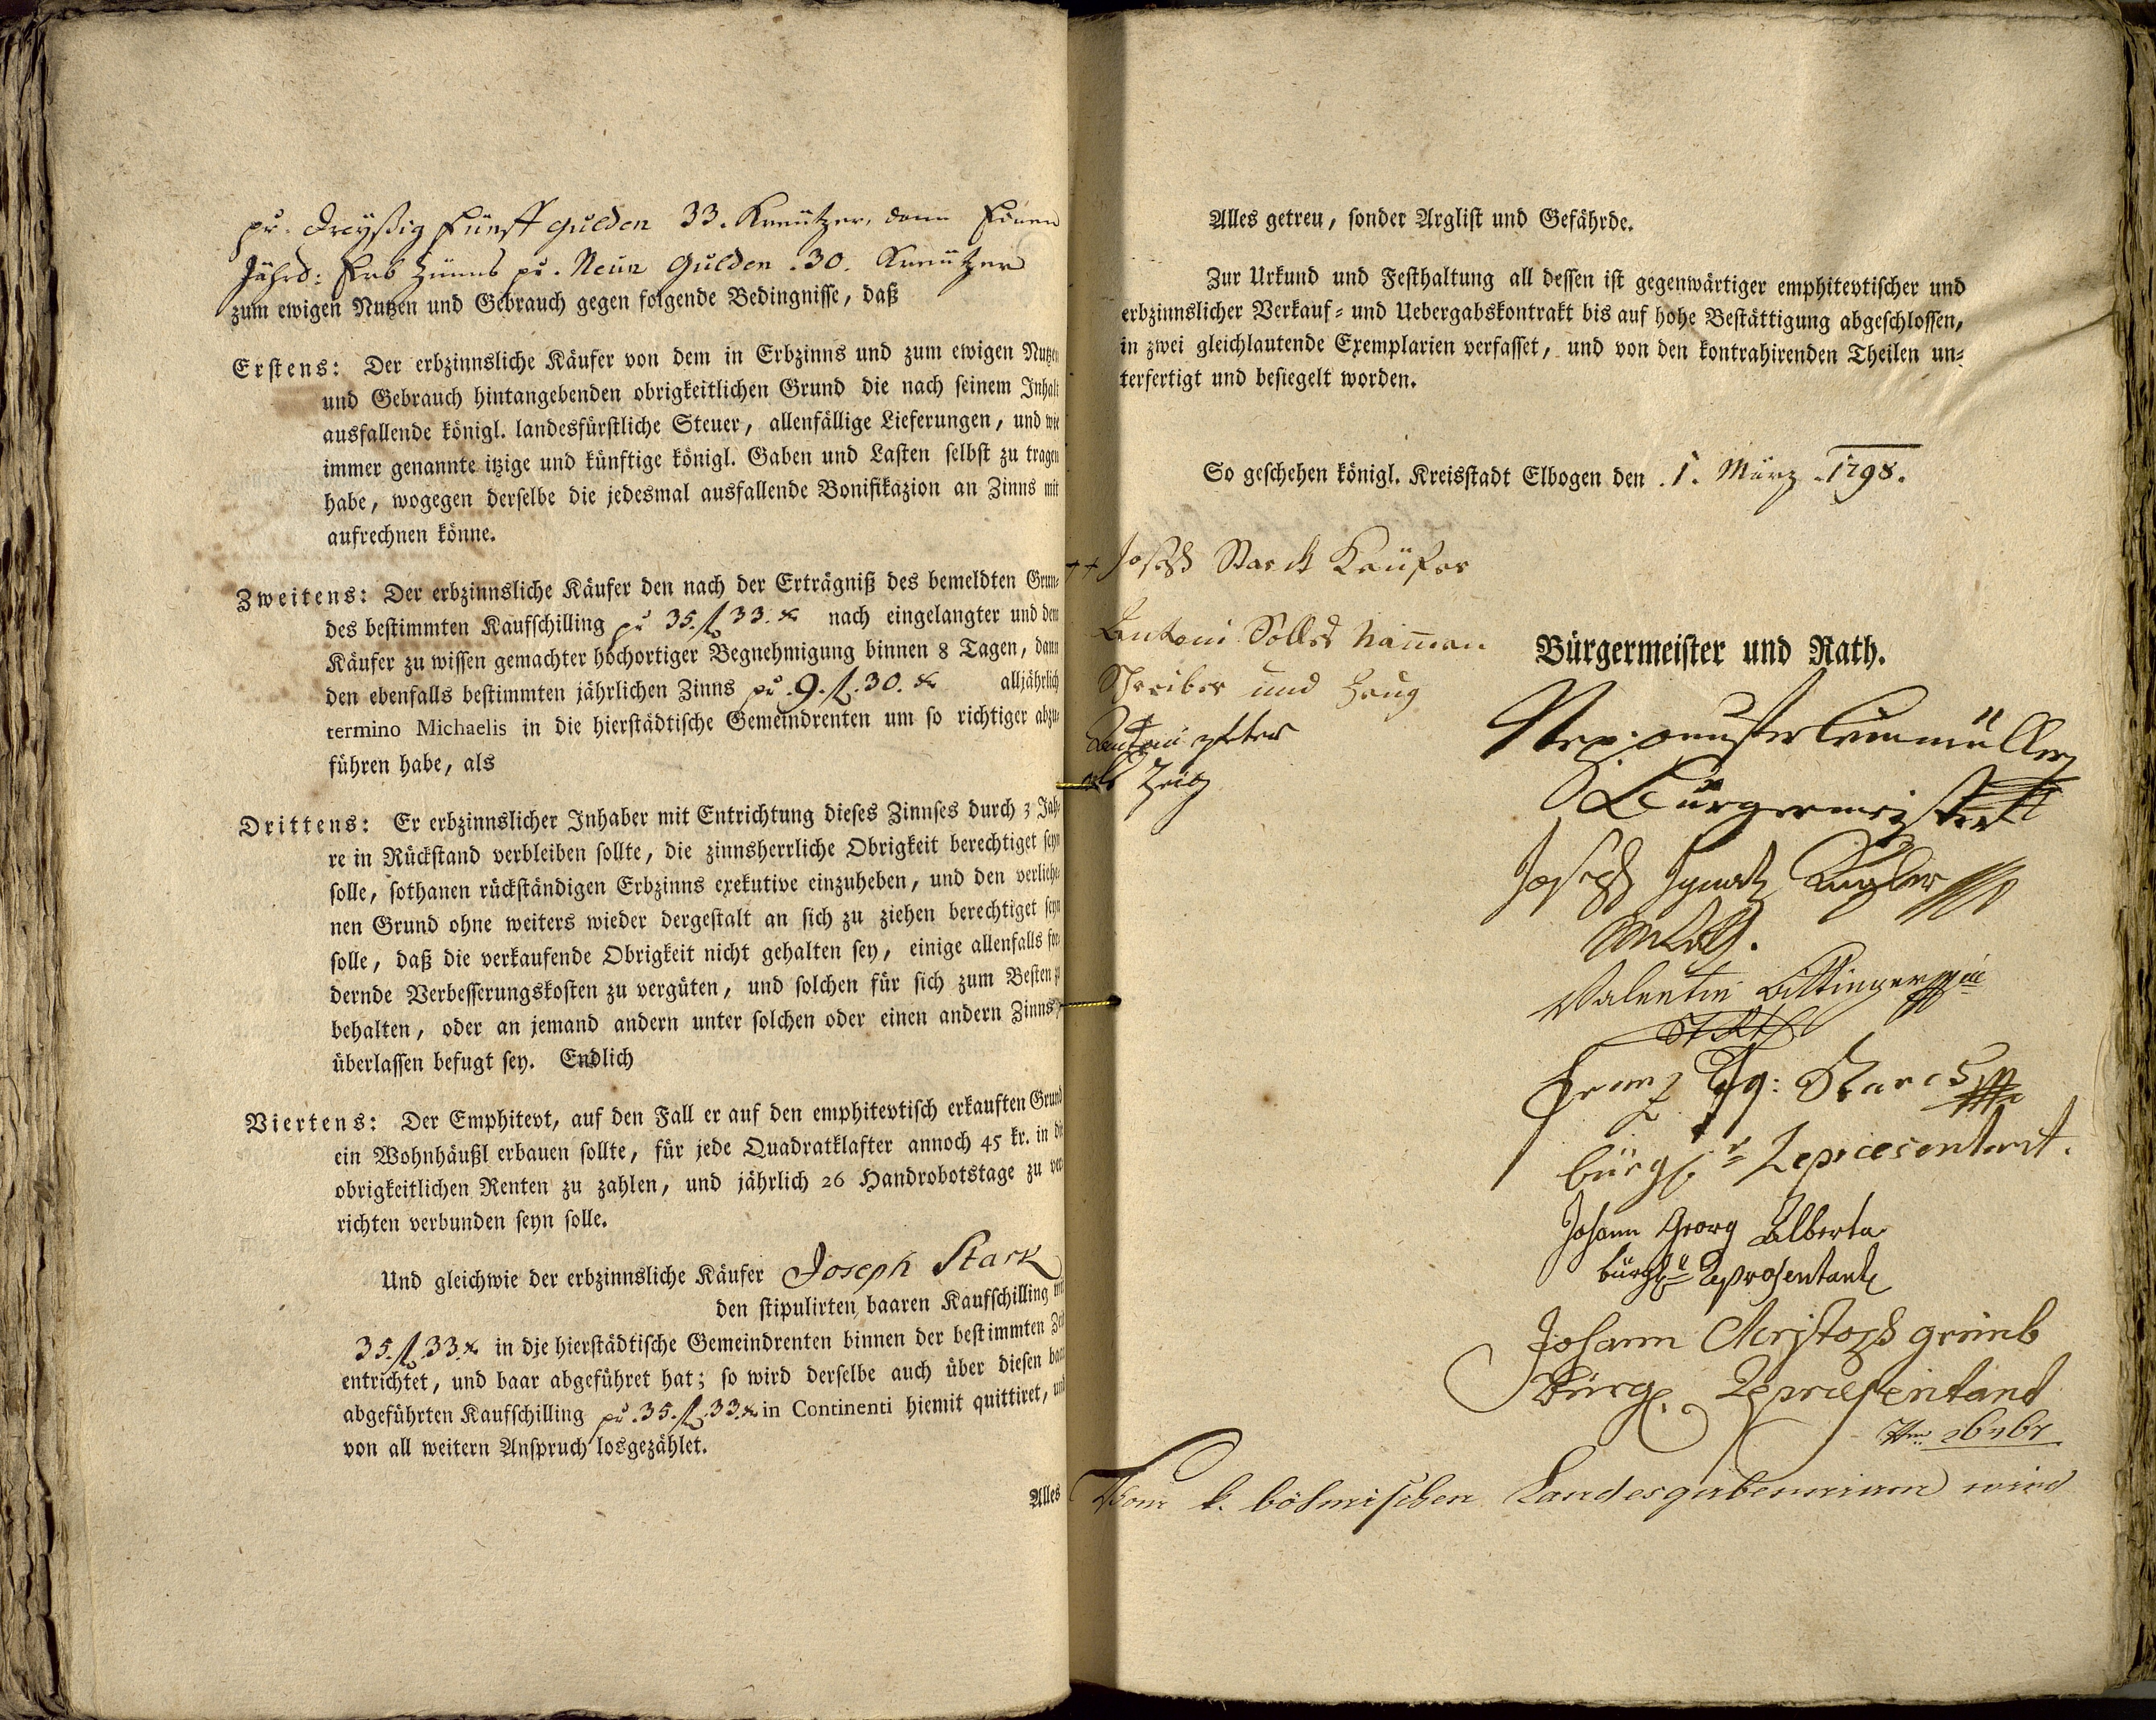 pr. Dreyßig Fünff Gulden 33. Kreützer, dann Einen
Jährl: Erb Zünns pr. Neün Gulden .30. Kreützer
zum ewigen Nutzen und Gebrauch gegen folgende Bedingnisse, daß
Erstens: Der erbzinnsliche Käufer von dem in Erbzinns und zum ewigen Nutzen
und Gebrauch hintangebenden obrigkeitlichen Grund die nach seinem Inhalt
ausfallende königl. landesfürstliche Steuer, allenfällige Lieferungen, und wie
immer genannte itzige und künftige königl. Gaben und Lasten selbst zu tragen
habe, wogegen derselbe die jedesmal ausfallende Bonifikazion an Zinns mit
aufrechnen könne.
Zweitens: Der erbzinnsliche Käufer den nach der Erträgniß des bemeldten Grun-
des bestimmten Kaufschilling pr 35. fl 33. xr nach eingelangter und dem
Käufer zu wissen gemachter hochortiger Begnehmigung binnen 8 Tagen, dann
den ebenfalls bestimmten jährlichen Zinns pr .9. fl. 30. xr alljährlich
termino Michaelis in die hierstädtische Gemeindrenten um so richtiger abzu-
führen habe, als
Drittens: Er erbzinnslicher Inhaber mit Entrichtung dieses Zinnses durch 3 Jah-
re in Rückstand verbleiben sollte, die zinnsherrliche Obrigkeit berechtiget seyn
solle, sothanen rückständigen Erbzinns exekutive einzuheben, und den verliehe-
nen Grund ohne weiters wieder dergestalt an sich zu ziehen berechtiget seyn
solle, daß die verkaufende Obrigkeit nicht gehalten sey, einige allenfalls for-
dernde Verbesserungskosten zu vergüten, und solchen für sich zum Besten
behalten, oder an jemand andern unter solchen oder einen andern Zinns
überlassen befugt sey. Endlich
Viertens: Der Emphitevt, auf den Fall er auf den emphitevtisch erkauften Grund
ein Wohnhäußl erbauen sollte, für jede Quadratklafter annoch 45 kr. in die
obrigkeitlichen Renten zu zahlen, und jährlich 26 Handrobotstage zu ver-
richten verbunden seyn solle.
Und gleichwie der erbzinnsliche Käufer Joseph Stark
den stipulirten baaren Kaufschilling mit
35. fl 33. xr in die hierstädtische Gemeindrenten binnen der bestimmten Zeit
entrichtet, und baar abgeführet hat; so wird derselbe auch über diesen baar
abgeführten Kaufschilling pr. 35. fl. 33. xr in Continenti hiemit quittiret, und
von all weitern Anspruch losgezählet.
Alles
Alles getreu, sonder Arglist und Gefährde.
Zur Urkund und Festhaltung all dessen ist gegenwärtiger emphitevtischer und
erbzinnslicher Verkauf- und Uebergabskontrakt bis auf hohe Bestättigung abgeschlossen,
in zwei gleichlautende Exemplarien verfasset, und von den kontrahirenden Theilen un-
terfertigt und besiegelt worden.
So geschehen königl. Kreisstadt Elbogen den .1. März .1798.
++ Joseph Starck Käufer
Antoni Namen
Schreiber und Zeug
Antoni
als Zeig
Bürgermeister und Rath.
Bürgermeister
Joseph Ignatz
Valentin
Franz Ig:
bürgl. Repraesentant.
Johann Georg Alberta
bürgl. Repräsentant
Johann Christoph
Bürgl. Repräsentant
Vom k. böhmischen Landesgubernium wird